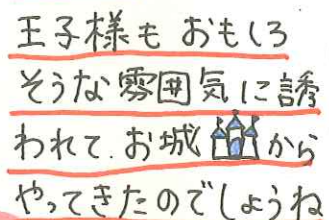 王子様も おもしろ
そうな雰囲気に誘
われて、お城から
やってきたのでしょうね